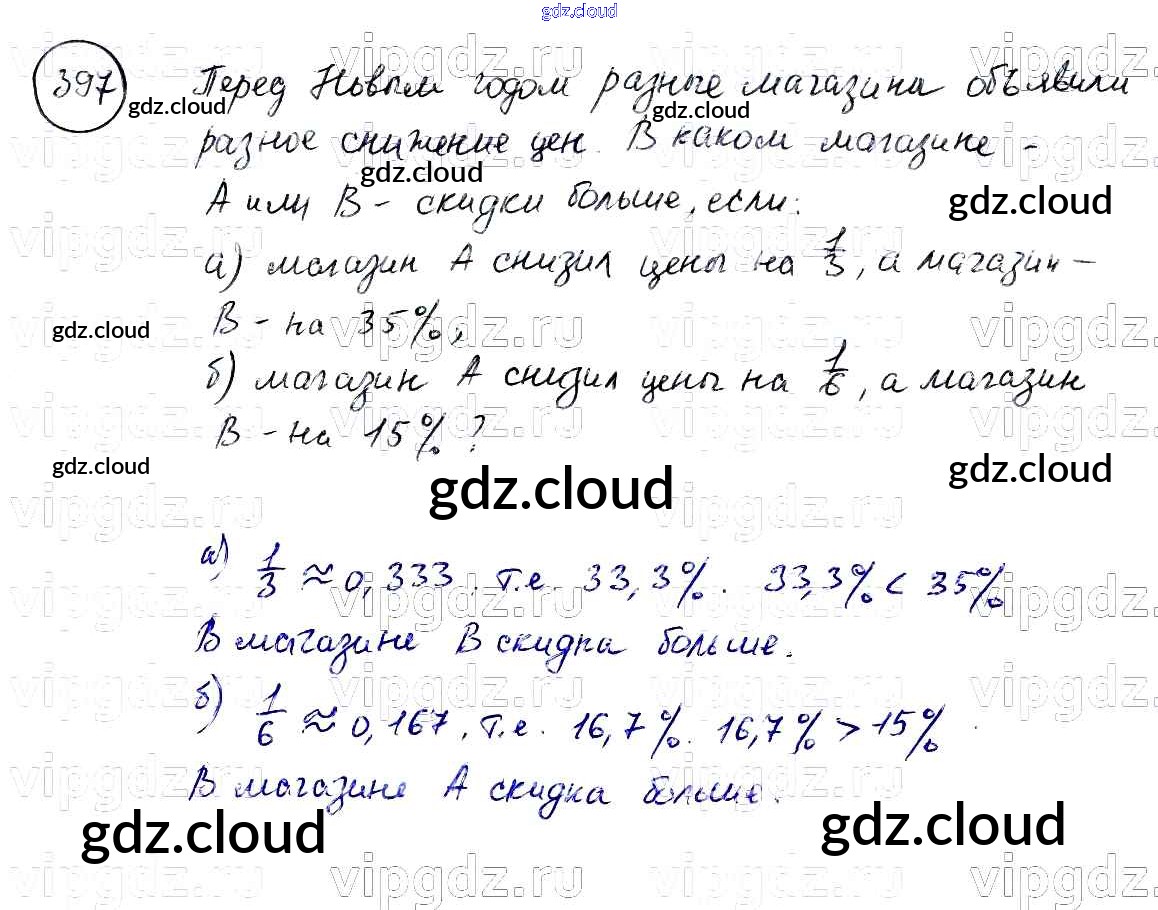 gdz.cloud
397 Перед Новым годом разные магазина объявили
gdz.cloud gdz.cloud
разное снижение цен. В каком магазине -
gdz.cloud
А или В - скидки больше, если:
gdz.cloud
а) магазин А снизил цены на 1/3, а магазин -
gdz.cloud
В - на 35%,
б) магазин А снизил цены на 1/6, а магазин
В - на 15%?
gdz.cloud gdz.cloud
gdz.cloud
а) 1/3 ≈ 0,333. т.е. 33,3%. 33,3% < 35%
В магазине В скидка больше.
б) 1/6 ≈ 0,167. т.е. 16,7%. 16,7% > 15%.
В магазине А скидка больше.
gdz.cloud gdz.cloud
vipgdz.ru vipgdz.ru vipgdz.ru vipgdz.ru